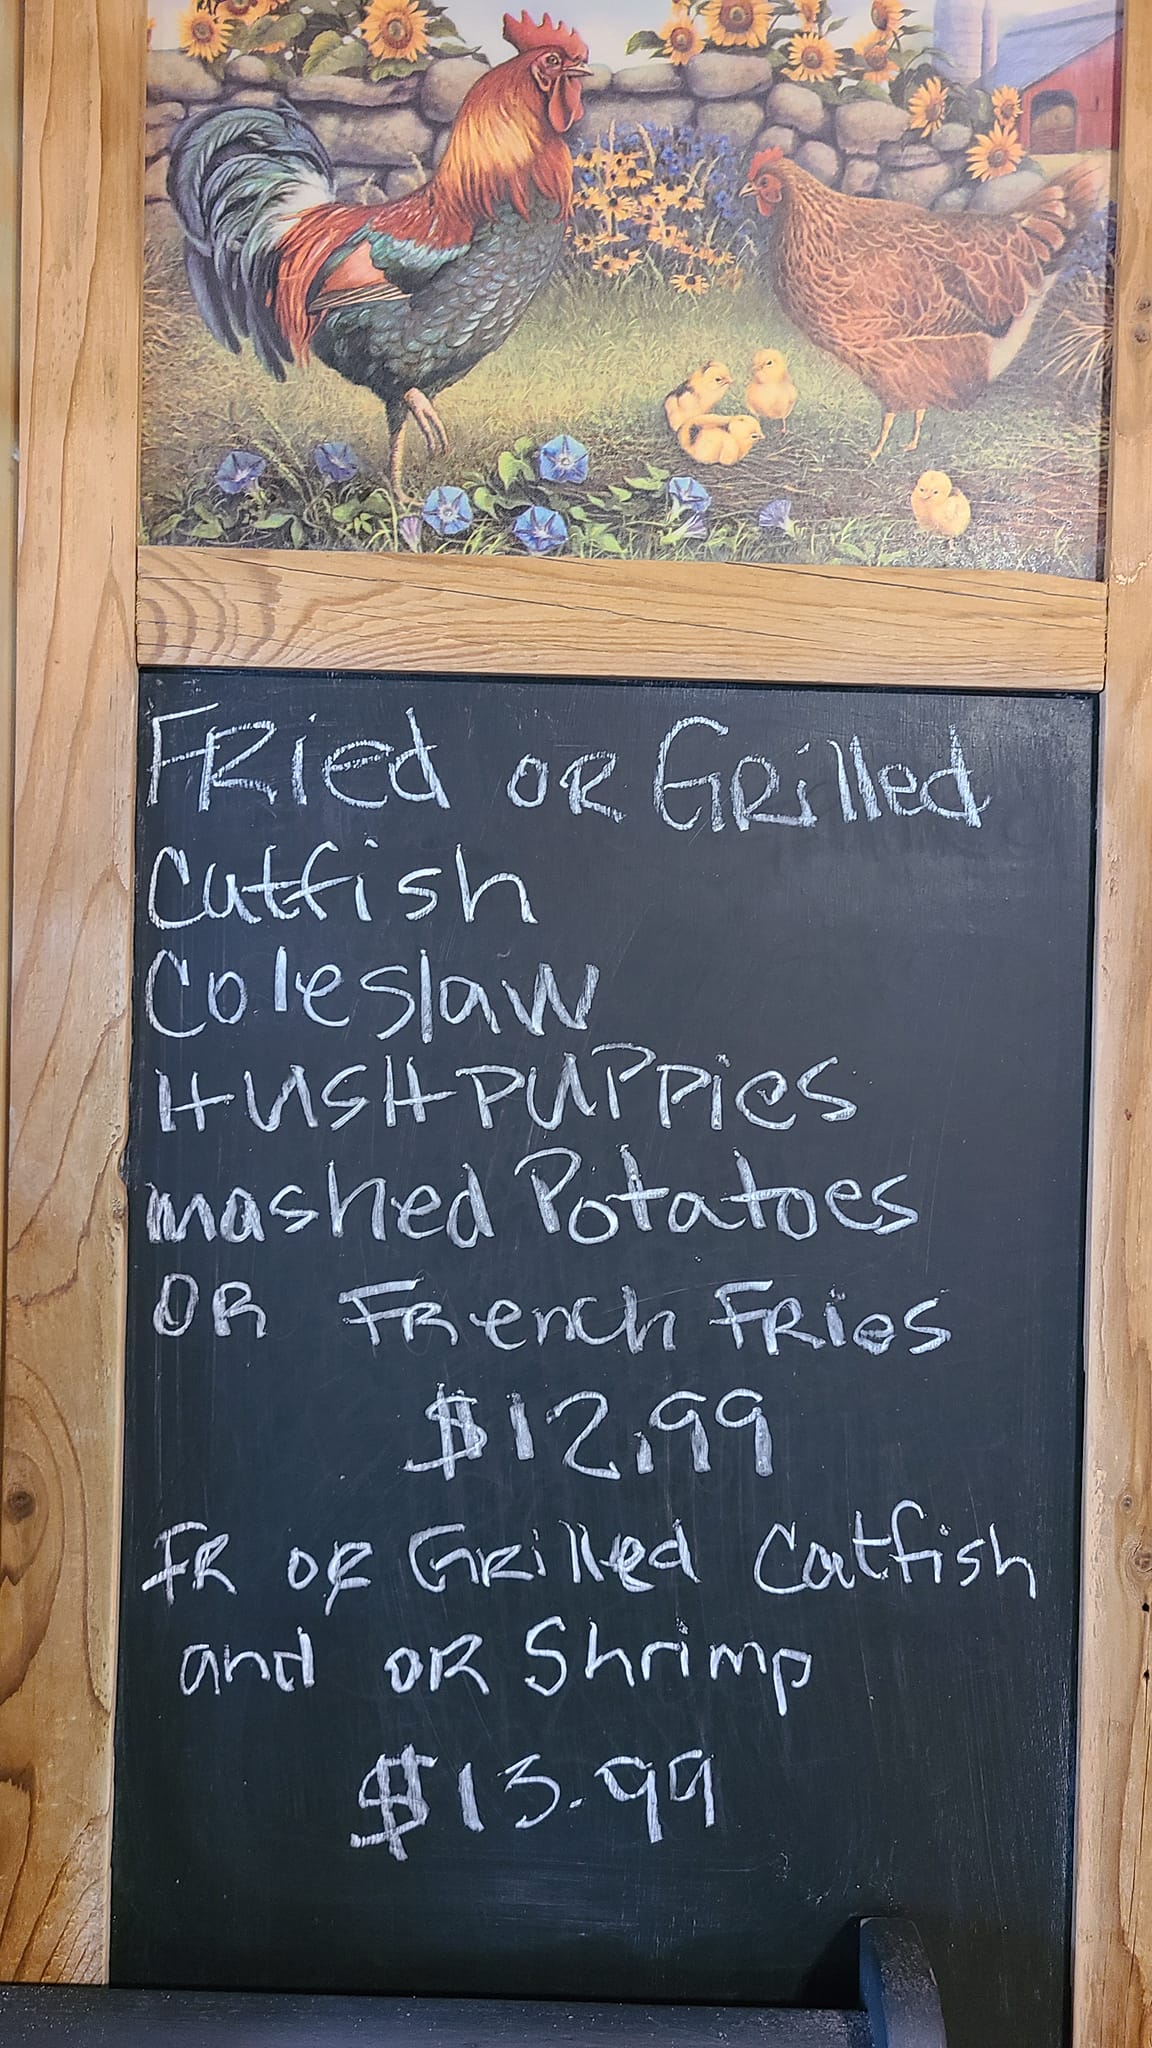 FRied OR GRilled
Catfish
Coleslaw
HUSHPUPPies
mashed Potatoes
OR FRench FRies
$12.99
FR OR GRilled Catfish
and OR Shrimp
$13.99